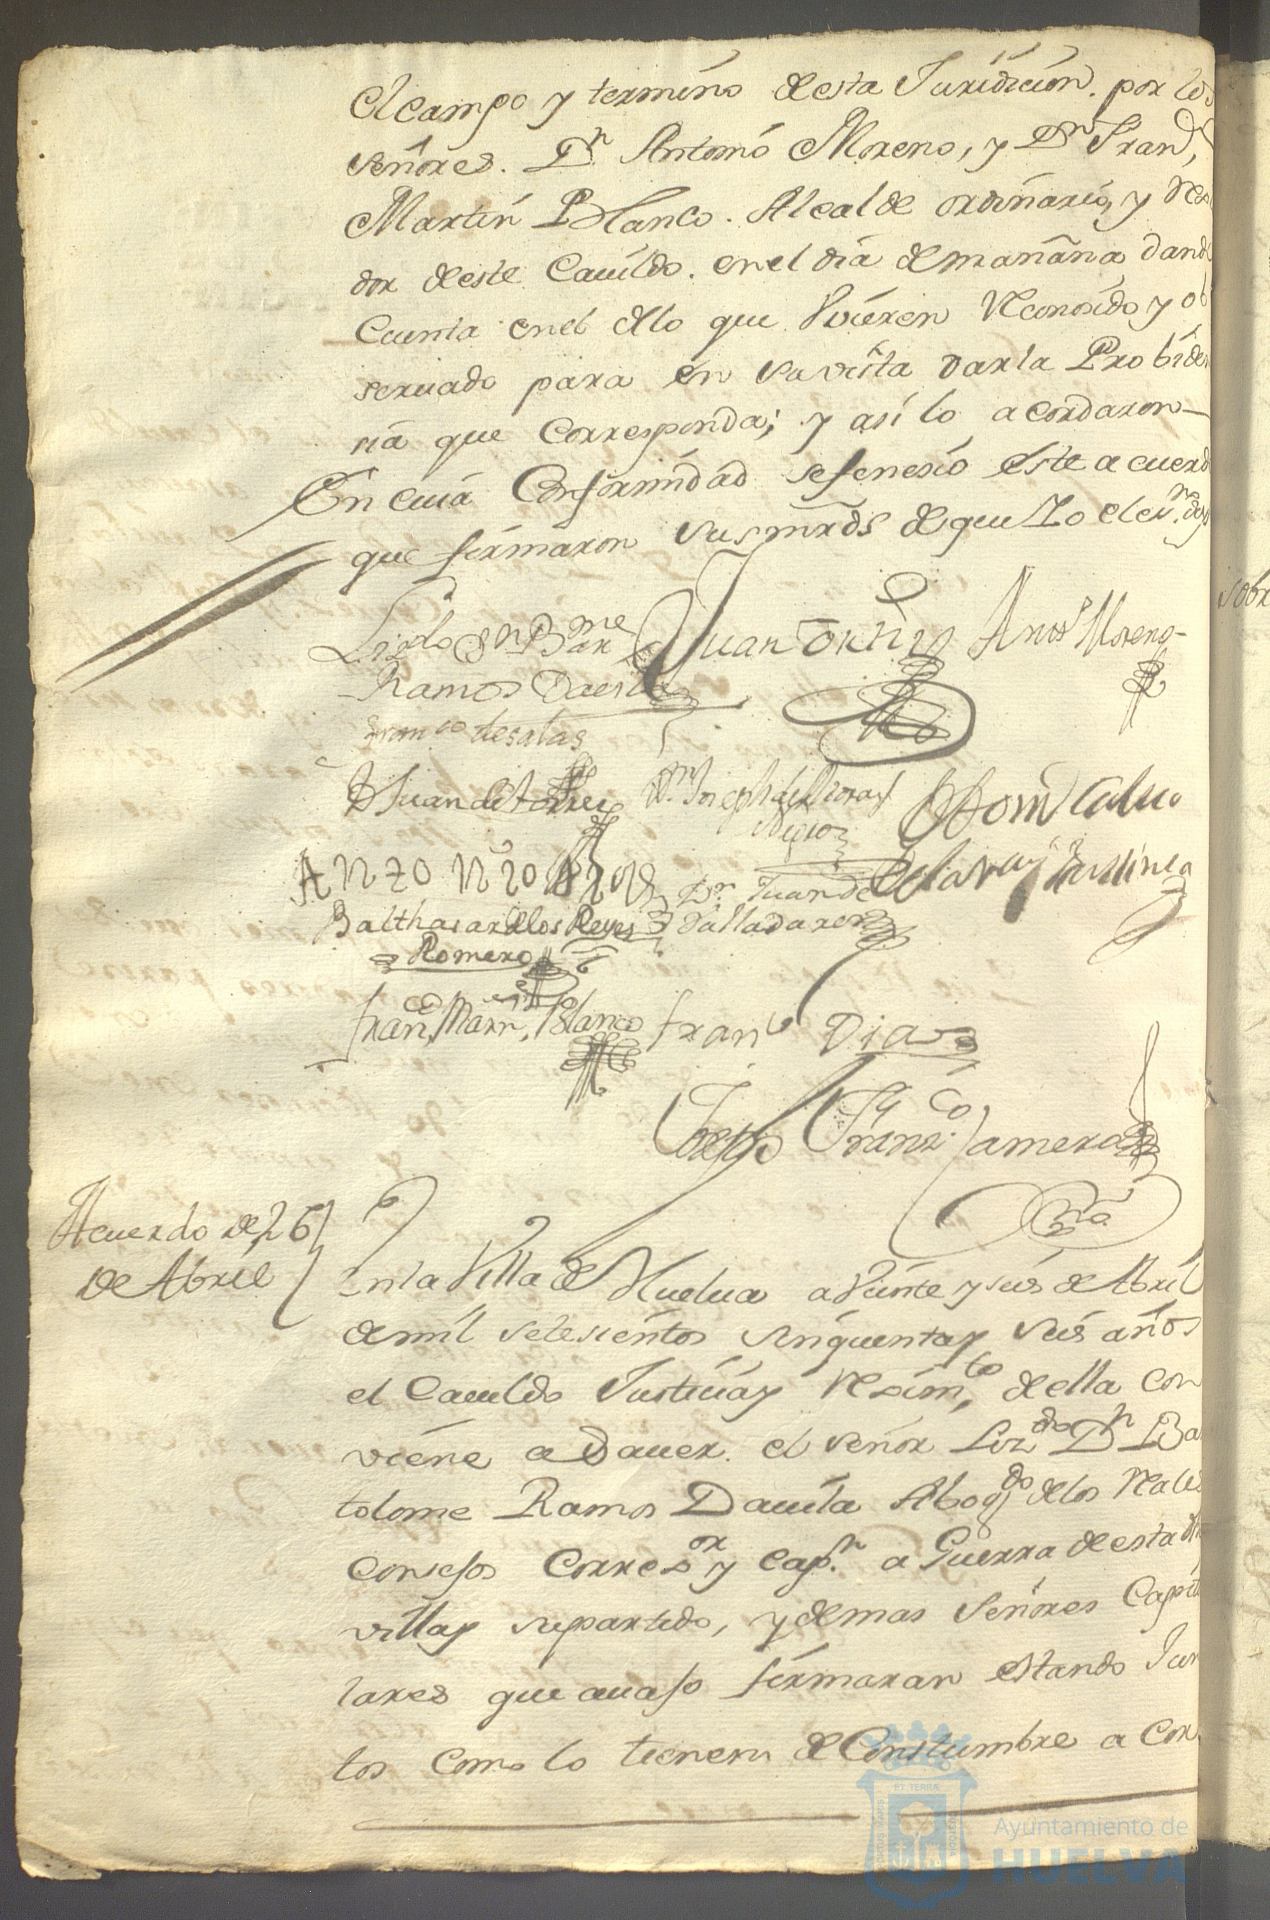 el campo y termino de esta Juridicion. por los
señores. Dn Antonio Moreno, y Dn Francº
Martin Blanco. Alcalde ordinario, y Rexi
dor de este Cauildo. en el dia de mañana dando
Cuenta en el de lo que Vuieren Reconosido y ob
seruado para en su vista dar la Probiden
sia que Corresponda; y asi lo acordaron
En cuia Conformidad se fenesio este acuerdo
que firmaron sus mrds de que Yo el esno doy
Lizdo Dn Barme
Ramos Dauila
Juan Ortiz
Antº Moreno
Franco de salas
D Juan de torres
Dn Joseph de
Balthasar de los Reyes
Romero
Dn Juan de
Valladares
Franco Marn Blanco
Franco Diaz
Joseph Franzco Zamerano
Acuerdo de 26
de Abril
En la Villa de Huelua a Veinte y seis de Abril
de mil setesientos sinquenta y seis años
el Cauildo Justicia y Reximto de ella con
viene a sauer. el señor Lizdo Dn Bar
tolome Ramos Dauila Abogdo de los Reales
Consejos Correxor y Capn a Guerra de esta dha
villa y su partido, y demas señores Capitu
lares que auajo firmaran estando Jun
tos como lo tienen de Constumbre a Con
sobre
Ayuntamiento de
HUELVA